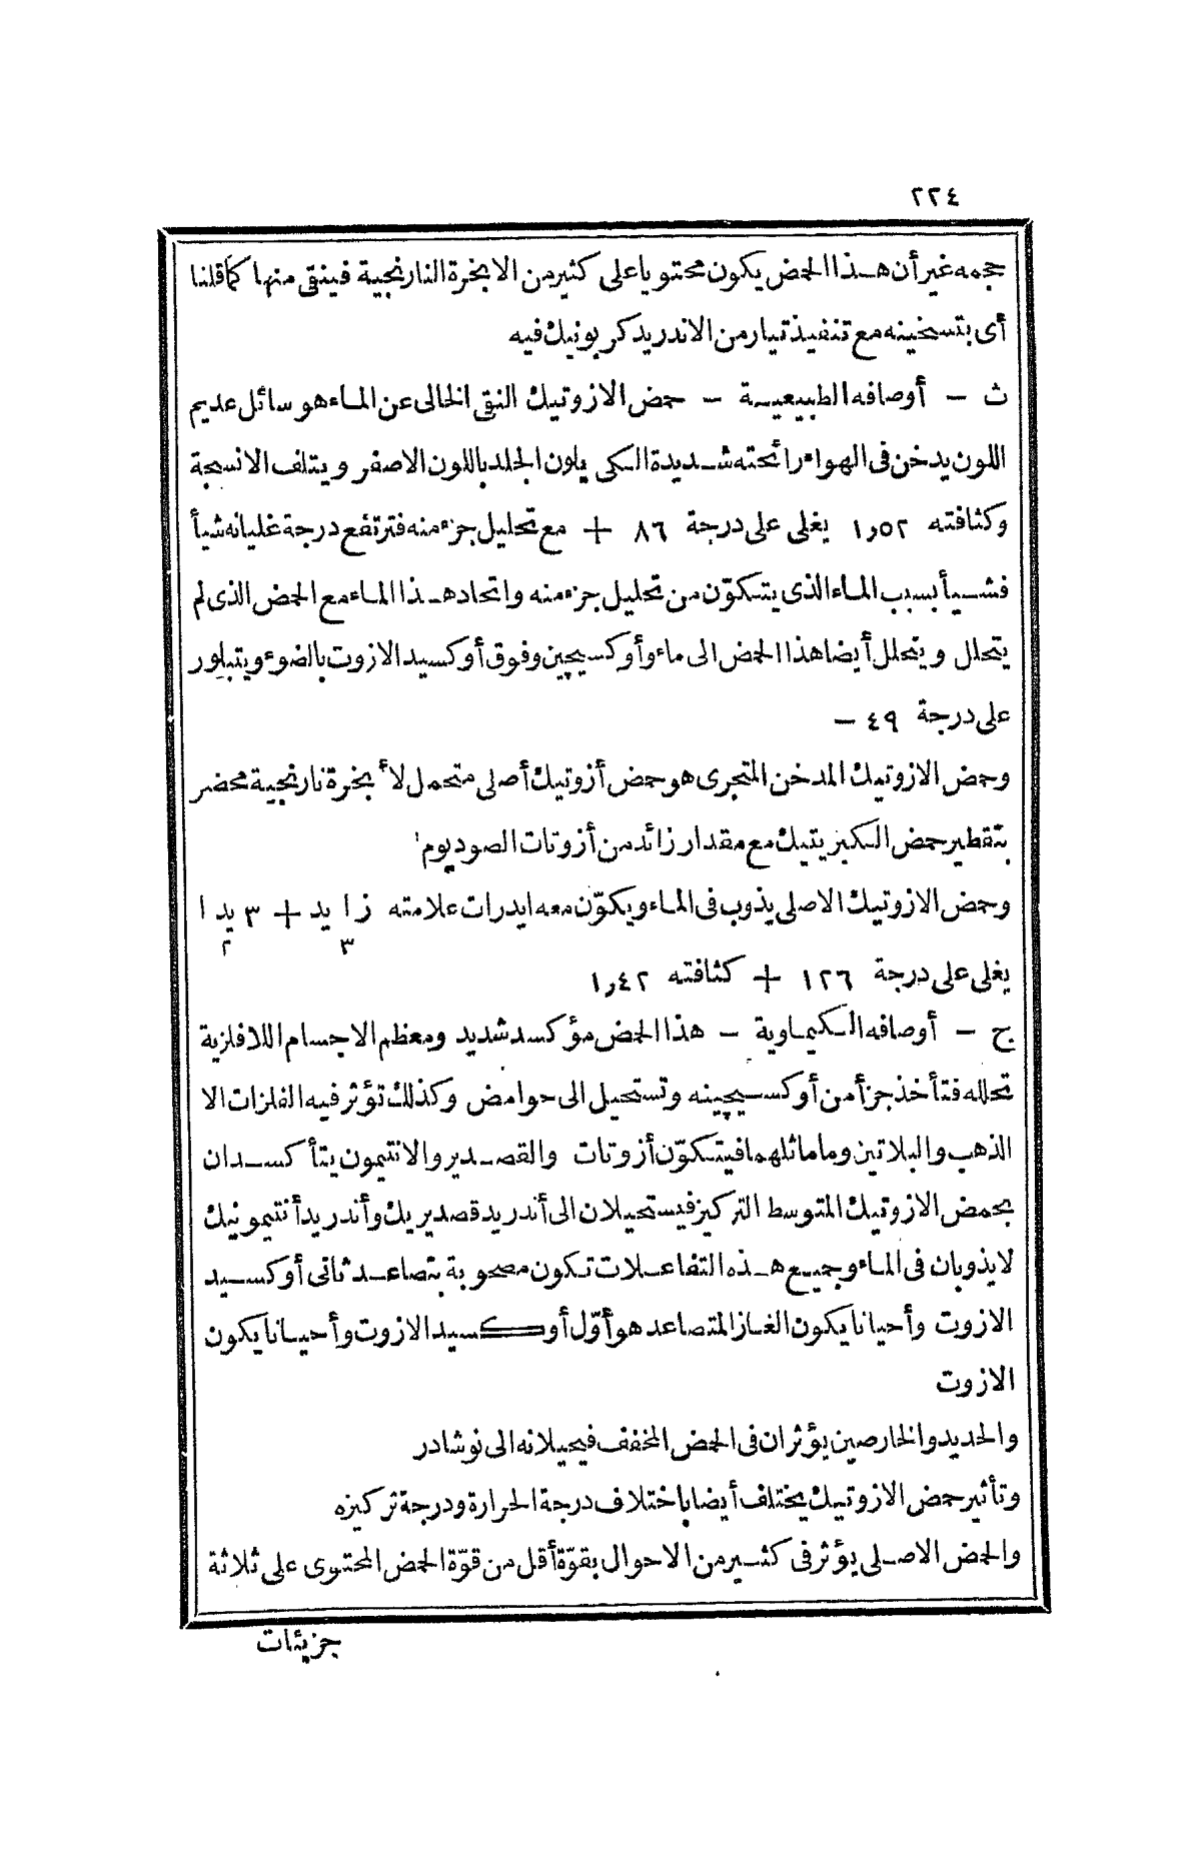 ٢٢٤
حجمه غير أن هذا الحمض يكون محتويا على كثير من الابخرة النارنجية فينقى منها كما قلنا
أى بتسخينه مع تنفيذ تيار من الاندريد كربونيك فيه
ث — أوصافه الطبيعية — حمض الازوتيك النقى الخالى عن الماء هو سائل عديم
اللون يدخن فى الهواء رائحته شديدة الكى يلون الجلد باللون الاصفر ويتلف الانسجة
وكثافته ١٫٥٢ يغلى على درجة ٨٦ + مع تحليل جزء منه فترتفع درجة غليانه شيأ
فشيأ بسبب الماء الذى يتكوّن من تحليل جزء منه واتحاد هذا الماء مع الحمض الذى لم
يتحلل ويتحلل أيضا هذا الحمض الى ماء وأوكسيجين وفوق أوكسيد الازوت بالضوء ويتبلور
على درجة ٤٩ —
وحمض الازوتيك المدخن المتجرى هو حمض أزوتيك أصلى متحمل لأبخرة نارنجية محضر
بتقطير حمض الكبريتيك مع مقدار زائد من أزوتات الصوديوم
وحمض الازوتيك الاصلى يذوب فى الماء ويكوّن معه ايدرات علامته زا يد + ٣ يد ا
٣ ٢
يغلى على درجة ١٢٦ + كثافته ١٫٤٢
ج — أوصافه الكيماوية — هذا الحمض مؤكسد شديد ومعظم الاجسام اللافلزية
تحلله فتأخذ جزأ من أوكسيجينه وتستحيل الى حوامض وكذلك تؤثر فيه الفلزات الا
الذهب والبلاتين وما ماثلهما فيتكوّن أزوتات والقصدير والانتيمون يتأكسدان
بحمض الازوتيك المتوسط التركيز فيستحيلان الى أندريد قصديريك وأندريد أنتيمونيك
لا يذوبان فى الماء وجميع هذه التفاعلات تكون مصحوبة بتصاعد ثانى أوكسيد
الازوت وأحيانا يكون الغاز المتصاعد هو أوّل أوكسيد الازوت وأحيانا يكون
الازوت
والحديد والخارصين يؤثران فى الحمض المخفف فيحيلانه الى نوشادر
وتأثير حمض الازوتيك يختلف أيضا باختلاف درجة الحرارة ودرجة تركيزه
والحمض الاصلى يؤثر فى كثير من الاحوال بقوّة أقل من قوّة الحمض المحتوى على ثلاثة
جزيئات